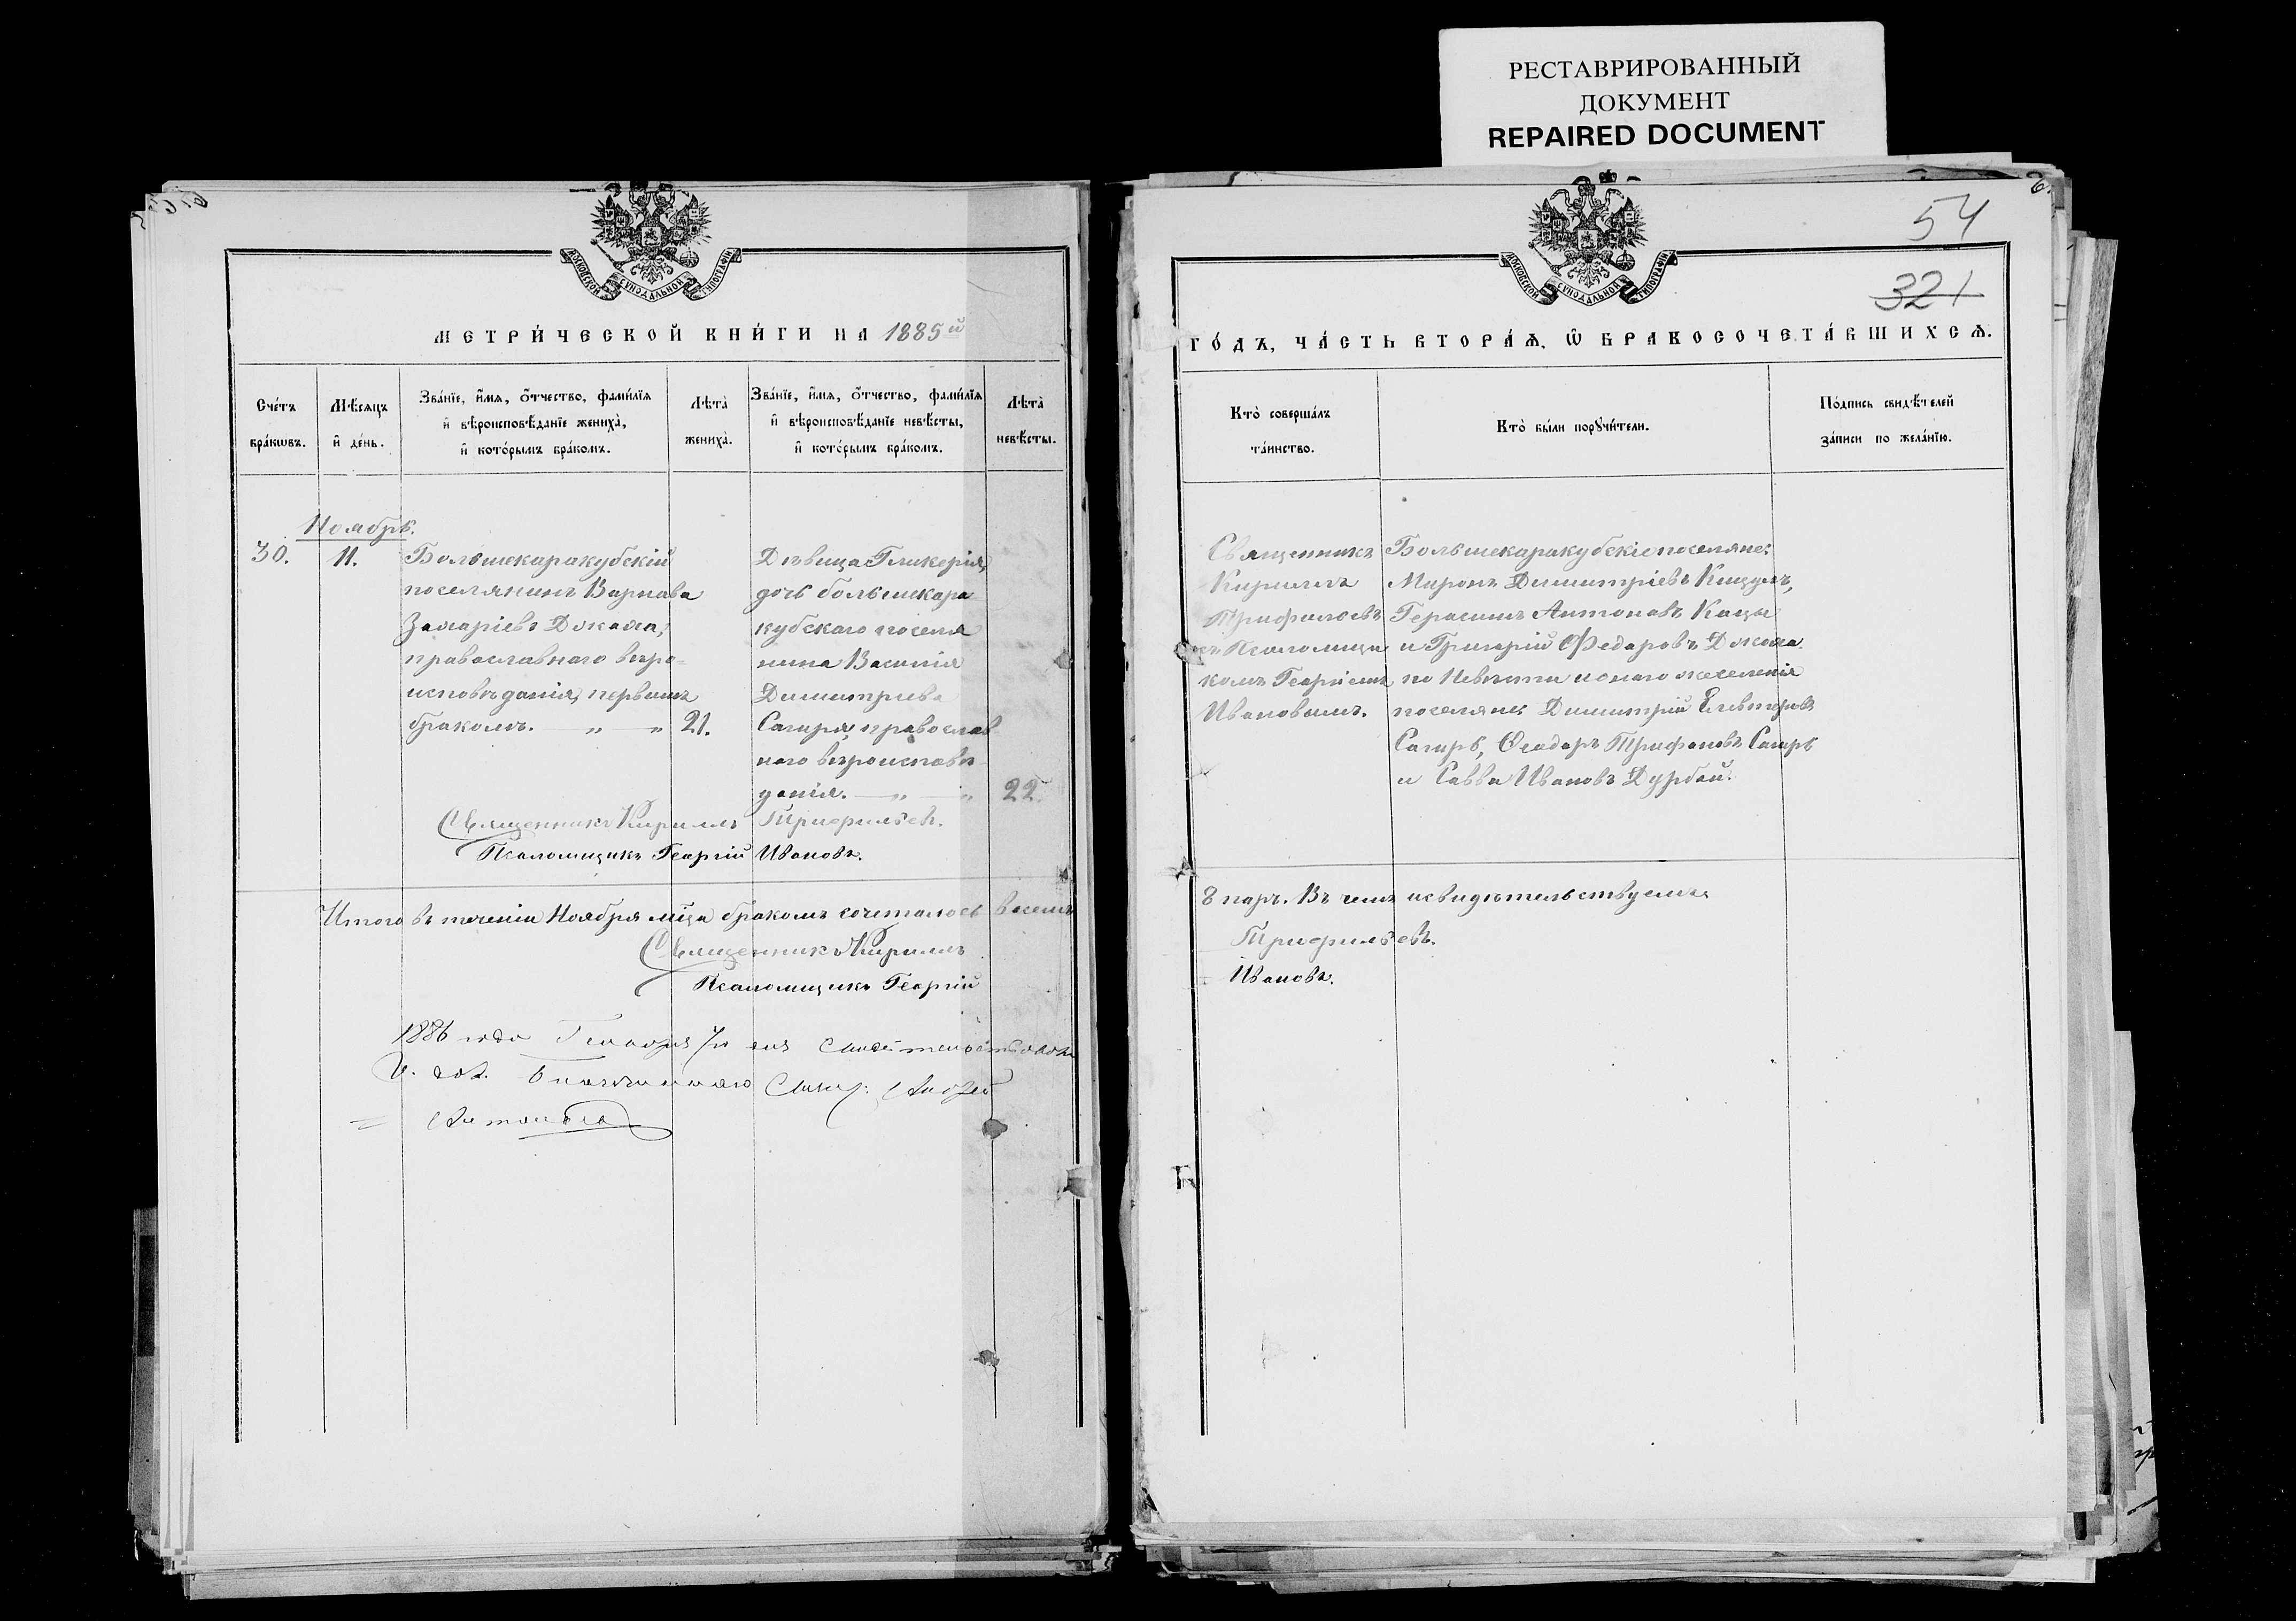 РЕСТАВРИРОВАННЫЙ
ДОКУМЕНТ
REPAIRED DOCUMENT
МОСКОВСКОЙ СѴНОДАЛЬНОЙ ТИПОГРАФІИ
МЕТРИ́ЧЕСКОЙ КНИ́ГИ НА 1885й
Сче́тъ бра́кѡвъ.
Мѣ́сяцъ и҆ де́нь.
Зва́нїе, и҆́мѧ, о҆́тчество, фами́лїѧ и҆ вѣроисповѣ́данїе жениха̀, и҆ кото́рымъ бра́комъ.
Лѣта̀ жениха̀.
Зва́нїе, и҆́мѧ, о҆́тчество, фами́лїѧ и҆ вѣроисповѣ́данїе невѣ́сты, и҆ кото́рымъ бра́комъ.
Лѣта̀ невѣ́сты.
Ноябрь.
30.
11.
Большекаракубскій
поселянинъ Варнава
Захаріевъ Джама,
православнаго вѣро-
исповѣданія, первымъ
бракомъ. — „ — „
21.
Дѣвица Гликерія,
дочь большекара
кубскаго поселя
нина Василія
Димитріева
Сагиря, православ
наго вѣроисповѣ-
данія. — „ — „
22.
Священникъ Кириллъ Трифильевъ.
Псаломщикъ Георгій Ивановъ.
Итого въ теченіи Ноября мѣца бракомъ сочеталось восемь
Священникъ Кириллъ
Псаломщикъ Георгій
1886 года Генваря
Антоновъ
54
321
МОСКОВСКОЙ СѴНОДАЛЬНОЙ ТИПОГРАФІИ
ГО́ДЪ, ЧА́СТЬ ВТОРА́Ѧ, Ѡ҆ БРАКОСОЧЕТА́ВШИХСѦ.
Кто̀ соверша́лъ та́инство.
Кто̀ бы́ли порꙋчи́тели.
По́дпись свидѣ́телей за́писи по жела́нїю.
Священникъ
Кириллъ
Трифильевъ
съ Псаломщи
комъ Георгіемъ
Ивановымъ.
Большекаракубскіе поселяне:
Миронъ Димитріевъ
Герасимъ Антоновъ Кацы
и Григорій Федоровъ Джама.
по Невѣсти
поселяне Димитрій Елевтеровъ
Сагирь, Ѳеодоръ Трифоновъ Сагирь
и Савва Ивановъ Дурбай.
8 паръ. Въ чемъ и свидѣтельствуемъ
Трифильевъ.
Ивановъ.